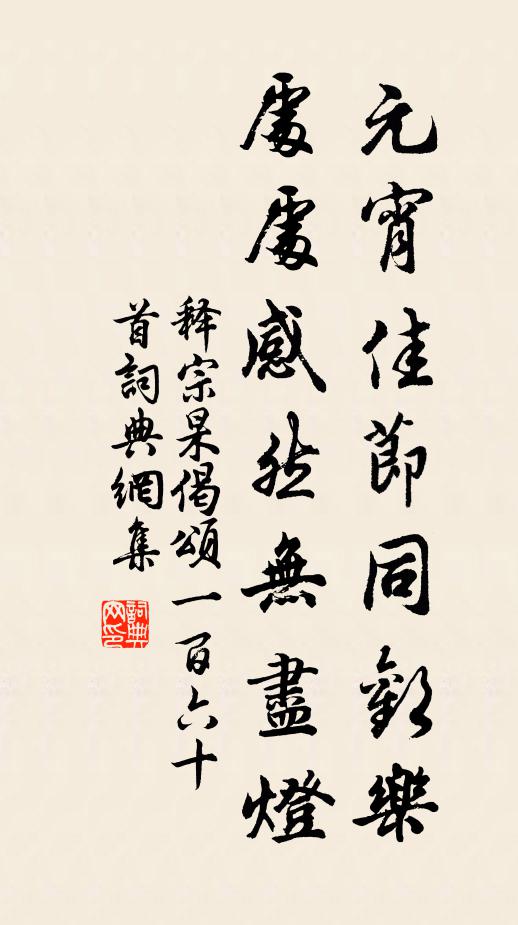 元宵佳節同歡樂
處處感然無盡燈
释宗杲偈頌一百六十
首詞典網集
詞典网印